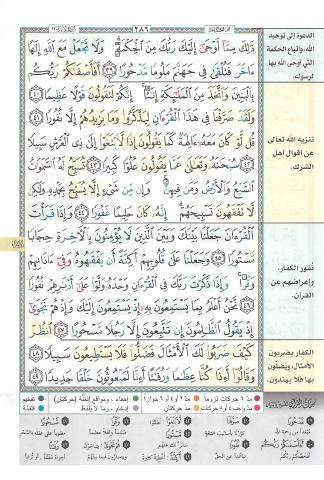 ٢٨٦
الدعوة إلى توحيد
الله، واتباع الحكمة
التي أوحى الله بها
لرسوله.
ذَٰلِكَ مِمَّآ أَوْحَىٰٓ إِلَيْكَ رَبُّكَ مِنَ ٱلْحِكْمَةِ ۗ وَلَا تَجْعَلْ مَعَ ٱللَّهِ إِلَٰهًا
ءَاخَرَ فَتُلْقَىٰ فِى جَهَنَّمَ مَلُومًا مَّدْحُورًا ٣٩ أَفَأَصْفَىٰكُمْ رَبُّكُم
بِٱلْبَنِينَ وَٱتَّخَذَ مِنَ ٱلْمَلَٰٓئِكَةِ إِنَٰثًا ۚ إِنَّكُمْ لَتَقُولُونَ قَوْلًا عَظِيمًا ٤٠
وَلَقَدْ صَرَّفْنَا فِى هَٰذَا ٱلْقُرْءَانِ لِيَذَّكَّرُوا۟ وَمَا يَزِيدُهُمْ إِلَّا نُفُورًا ٤١
قُل لَّوْ كَانَ مَعَهُۥٓ ءَالِهَةٌ كَمَا يَقُولُونَ إِذًا لَّٱبْتَغَوْا۟ إِلَىٰ ذِى ٱلْعَرْشِ سَبِيلًا
٤٢ سُبْحَٰنَهُۥ وَتَعَٰلَىٰ عَمَّا يَقُولُونَ عُلُوًّا كَبِيرًا ٤٣ تُسَبِّحُ لَهُ ٱلسَّمَٰوَٰتُ
ٱلسَّبْعُ وَٱلْأَرْضُ وَمَن فِيهِنَّ ۚ وَإِن مِّن شَىْءٍ إِلَّا يُسَبِّحُ بِحَمْدِهِۦ وَلَٰكِن
لَّا تَفْقَهُونَ تَسْبِيحَهُمْ ۗ إِنَّهُۥ كَانَ حَلِيمًا غَفُورًا ٤٤ وَإِذَا قَرَأْتَ
ٱلْقُرْءَانَ جَعَلْنَا بَيْنَكَ وَبَيْنَ ٱلَّذِينَ لَا يُؤْمِنُونَ بِٱلْءَاخِرَةِ حِجَابًا
مَّسْتُورًا ٤٥ وَجَعَلْنَا عَلَىٰ قُلُوبِهِمْ أَكِنَّةً أَن يَفْقَهُوهُ وَفِىٓ ءَاذَانِهِمْ
وَقْرًا ۚ وَإِذَا ذَكَرْتَ رَبَّكَ فِى ٱلْقُرْءَانِ وَحْدَهُۥ وَلَّوْا۟ عَلَىٰٓ أَدْبَٰرِهِمْ نُفُورًا
٤٦ نَّحْنُ أَعْلَمُ بِمَا يَسْتَمِعُونَ بِهِۦٓ إِذْ يَسْتَمِعُونَ إِلَيْكَ وَإِذْ هُمْ نَجْوَىٰٓ
إِذْ يَقُولُ ٱلظَّٰلِمُونَ إِن تَتَّبِعُونَ إِلَّا رَجُلًا مَّسْحُورًا ٤٧ ٱنظُرْ
كَيْفَ ضَرَبُوا۟ لَكَ ٱلْأَمْثَالَ فَضَلُّوا۟ فَلَا يَسْتَطِيعُونَ سَبِيلًا ٤٨
وَقَالُوٓا۟ أَءِذَا كُنَّا عِظَٰمًا وَرُفَٰتًا أَءِنَّا لَمَبْعُوثُونَ خَلْقًا جَدِيدًا ٤٩
تنزيه الله تعالى
عن أقوال أهل
الشرك.
نُفور الكفار،
وإعراضهم عن
القرآن.
الكفار يضربون
الأمثال، ويضلّون
بها فلا يهتدون.
مدّ ٦ حركات لزوماً مدّ ٢ أو ٤ أو ٦ جوازاً إخفاء، ومواقع الغنّة (حركتان) تفخيم
مدّ واجب ٤ أو ٥ حركات مدّ حركتان إدغام، وما لا يُلفَظ قلقلة